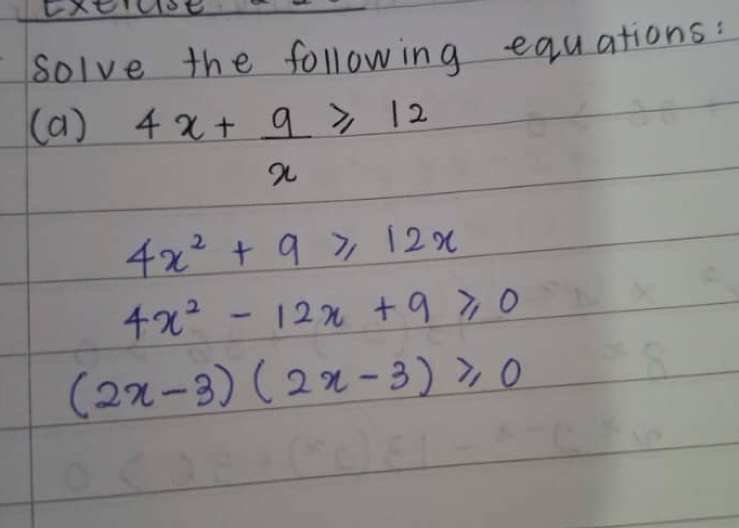 Exercise
Solve the following equations:
(a) 4x + 9/x ⩾ 12
4x² + 9 ⩾ 12x
4x² - 12x + 9 ⩾ 0
(2x-3)(2x-3) ⩾ 0